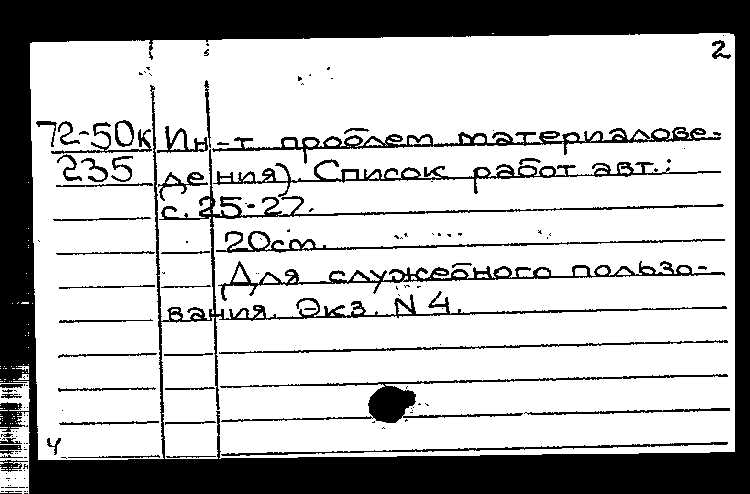 2
72-50к Ин-т проблем материалове-
235 дения). Список работ авт.:
с. 25-27.
20см.
Для служебного пользо-
вания. Экз. N 4.
4